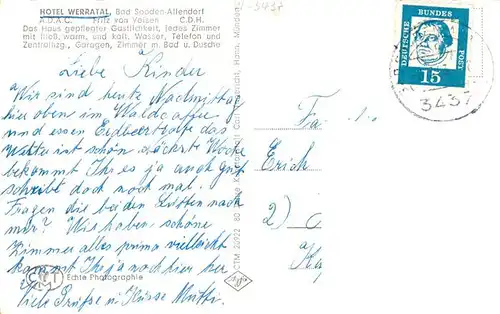 HOTEL WERRATAL, Bad Sooden-Allendorf
A.D.A.C. Fritz van Valsen C.D.H.
Das Haus gepflegter Gastlichkeit, jedes Zimmer
mit fließ. warm. und kalt. Wasser, Telefon und
Zentralhzg., Garagen, Zimmer m. Bad u. Dusche
Liebe Kinder
Wir sind heute Nachmittag
hier oben im Waldcaffee
und essen Erdbeertorte das
Wetter ist schön nächste Woche
bekommt Ihr es ja auch gut
schreibt doch noch mal.
Fragen die beiden noch
mehr? Wir haben schöne
Zimmer alles prima vielleicht
kommt Ihr ja noch hier her
Echte Photographie
Viele Grüße u. Küsse Mutti
DEUTSCHE BUNDES POST
15
3437
Fa
Erich
2)